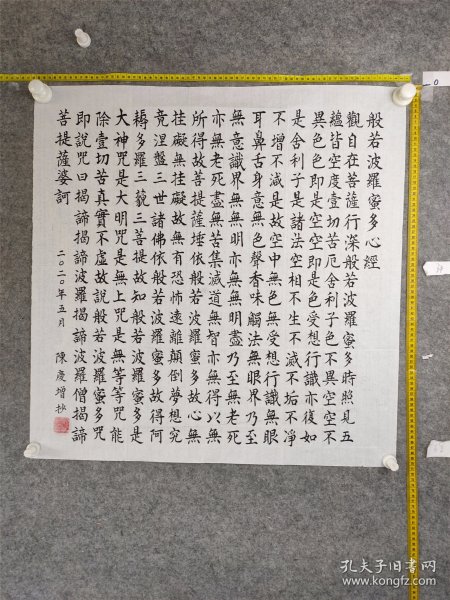 般若波羅蜜多心經
觀自在菩薩行深般若波羅蜜多時照見五
蘊皆空度壹切苦厄舍利子色不異空空不
異色色即是空空即是色受想行識亦復如
是舍利子是諸法空相不生不滅不垢不淨
不增不減是故空中無色無受想行識無眼
耳鼻舌身意無色聲香味觸法無眼界乃至
無意識界無無明亦無無明盡乃至無老死
亦無老死盡無苦集滅道無智亦無得以無
所得故菩提薩埵依般若波羅蜜多故心無
挂礙無挂礙故無有恐怖遠離顛倒夢想究
竟涅盤三世諸佛依般若波羅蜜多故得阿
耨多羅三藐三菩提故知般若波羅蜜多是
大神咒是大明咒是無上咒是無等等咒能
除壹切苦真實不虛故說般若波羅蜜多咒
即說咒曰揭諦揭諦波羅揭諦波羅僧揭諦
菩提薩婆訶
二〇二〇年五月 陳慶增抄
孔夫子旧书网
www.kongfz.com